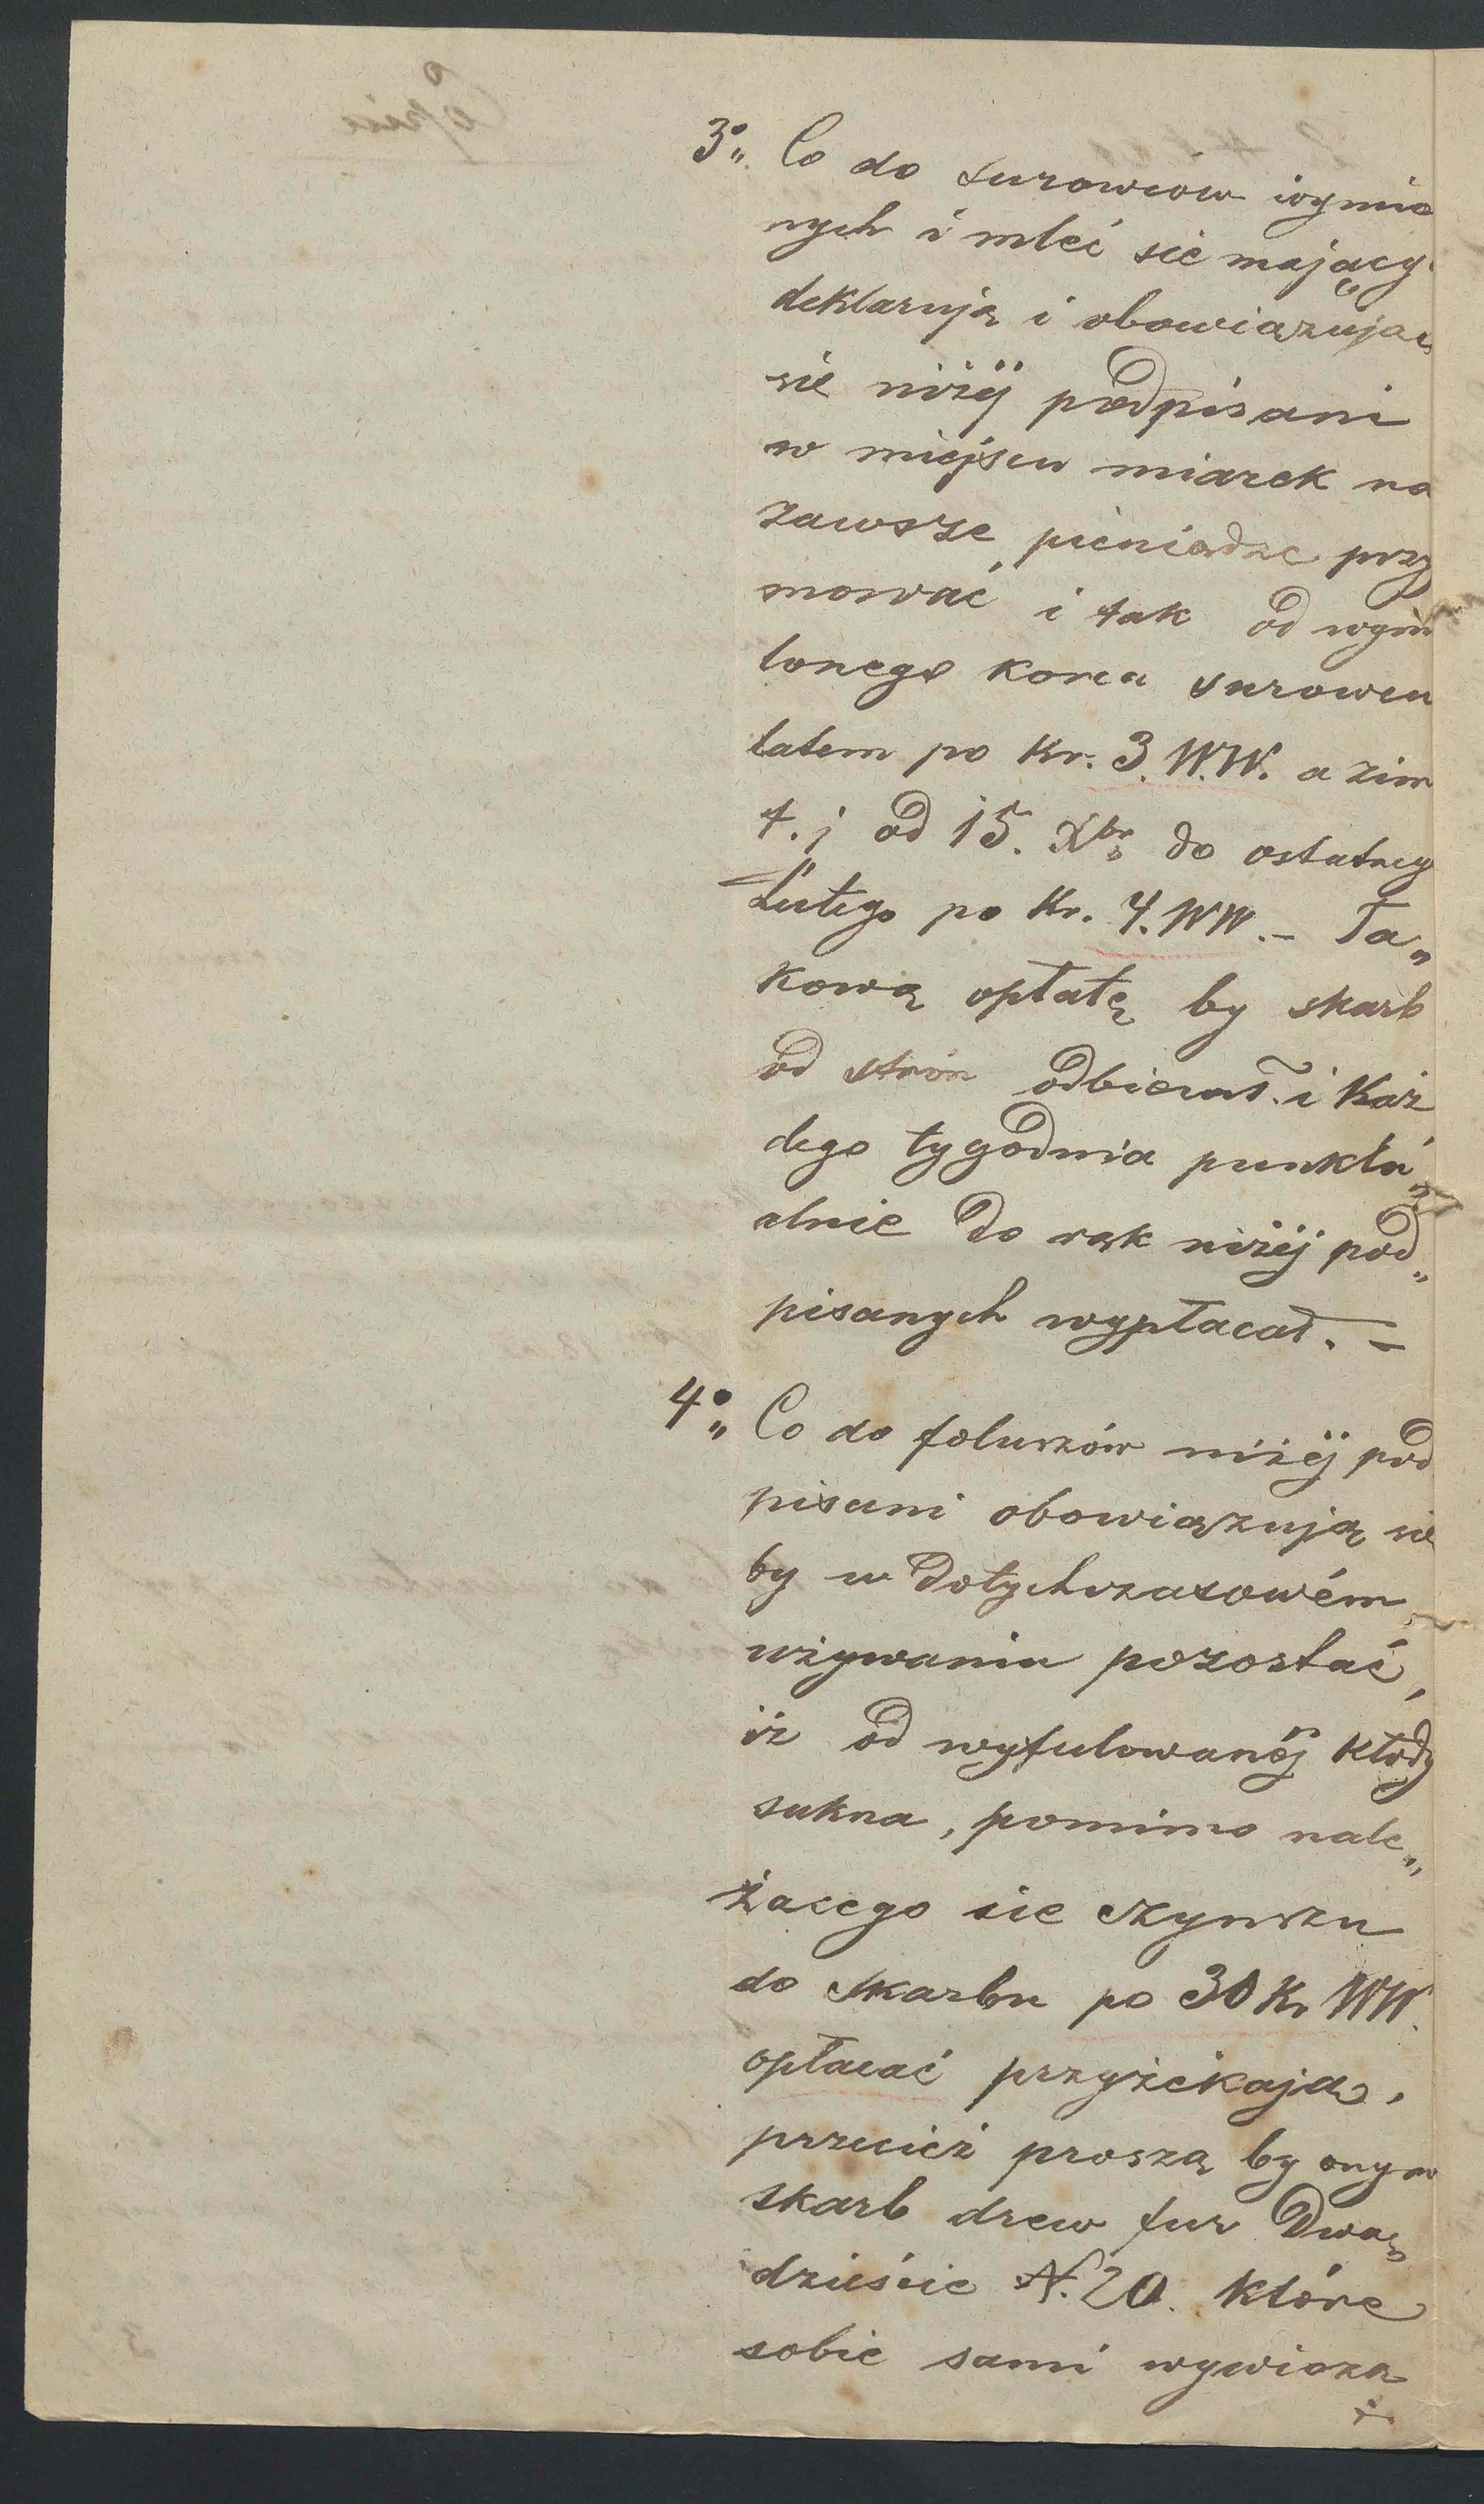 3° „ Co do surowców wymie
nych i mleć sie mający
deklarują i obowiązując
sie niżéj podpisani
w miejscu miarek na
zawsze pieniądze przy
mować i tak od wym
lonego korca surowcu
latem po Kr. 3. W.W. a zim
t. j od 15. Xbr do ostatneg
Lutego po Kr. 4. WW. – Ta„
kową opłatę by skarb
od stron odbierał i Każ
dego tygodnia punktu„
alnie do rąk niżéj pod„
pisanych wypłacał. –
4° „ Co do foluszów niżéj pod
pisani obowiązują sie
by w dotychczasowém
używaniu pozostać,
iż od wyfulowanéj kłody
sukna, pomimo nale„
żacego sie czynszu
do skarbu po 30 Kr WW.
opłacać przyżekają,
przecież proszą by onym
skarb drew fur Dwa„
dzieście N. 20. które
sobie sami wywiozą